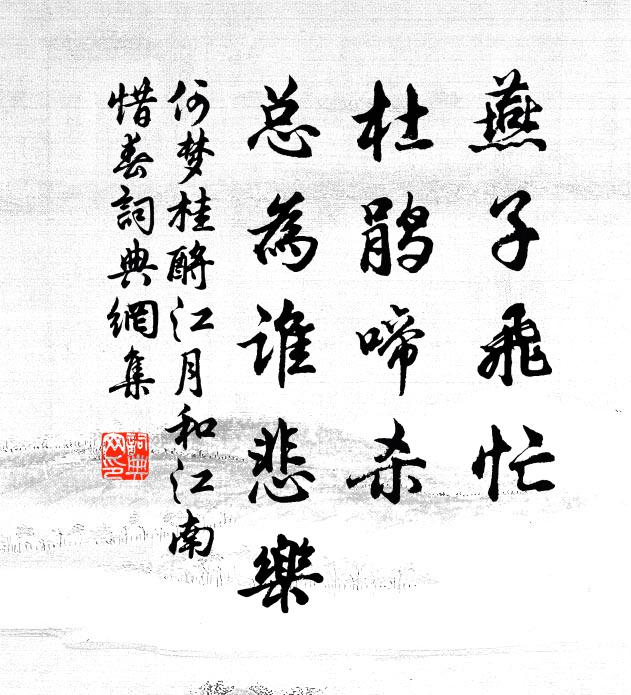 燕子飛忙
杜鹃啼杀
总為谁悲樂
何梦桂酹江月和江南
惜春詞典網集
詞典网印